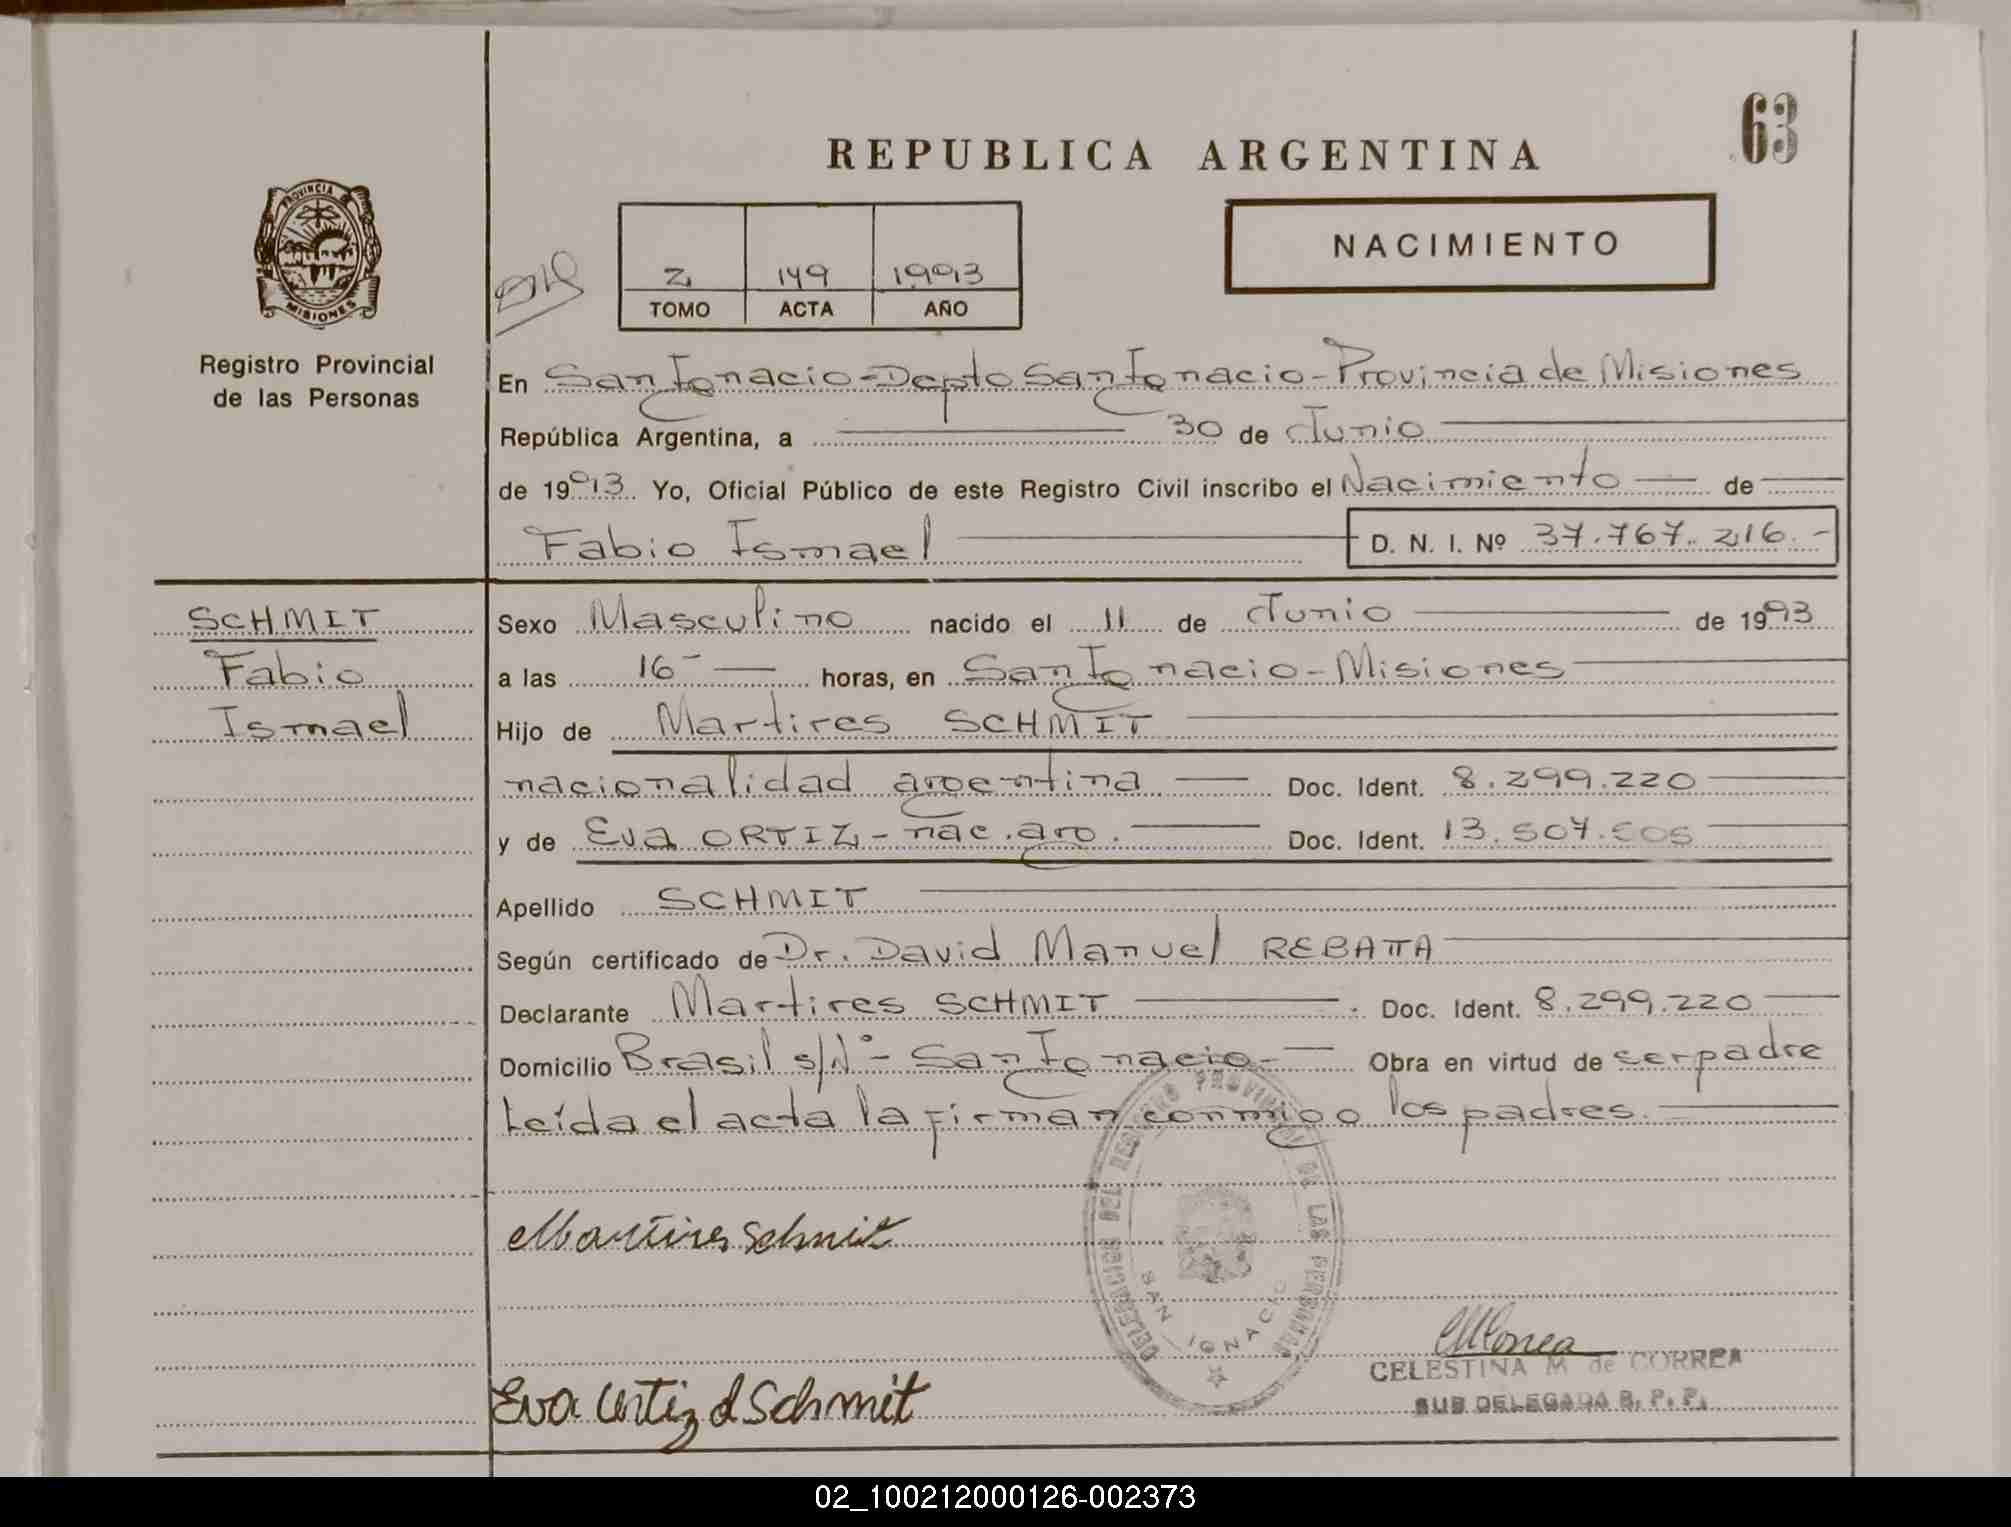 63
REPUBLICA ARGENTINA
PROVINCIA
MISIONES
Registro Provincial
de las Personas
2 149 1993
TOMO ACTA AÑO
NACIMIENTO
En San Ignacio - Depto San Ignacio - Provincia de Misiones
República Argentina, a 30 de Junio
de 1993. Yo, Oficial Público de este Registro Civil inscribo el Nacimiento de
Fabio Ismael D. N. I. Nº 37.767.216.-
SCHMIT
Fabio
Ismael
Sexo Masculino nacido el 11 de Junio de 1993
a las 16 horas, en San Ignacio - Misiones
Hijo de Martires SCHMIT
nacionalidad argentina Doc. Ident. 8.299.220
y de Eva ORTIZ - nac. arg. Doc. Ident. 13.507.505
Apellido SCHMIT
Según certificado de Dr. David Manuel REBATTA
Declarante Martires SCHMIT Doc. Ident. 8.299.220
Domicilio Brasil s/Nº - San Ignacio - Obra en virtud de ser padre
Leída el acta la firman conmigo los padres.
Martires Schmit
DELEGACION DEL REGISTRO PROVINCIAL DE LAS PERSONAS
SAN IGNACIO
CELESTINA M de CORREA
SUB DELEGADA R. P. P.
Eva Ortiz d Schmit
02_100212000126-002373